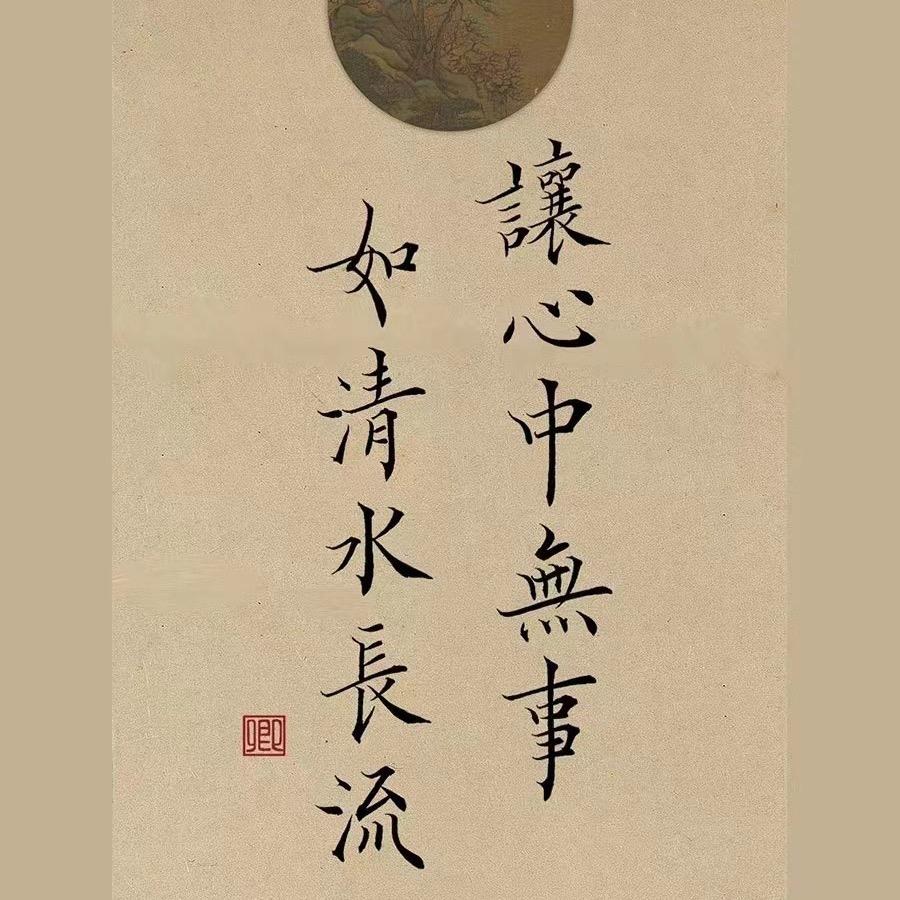 讓心中無事
如清水長流
卿